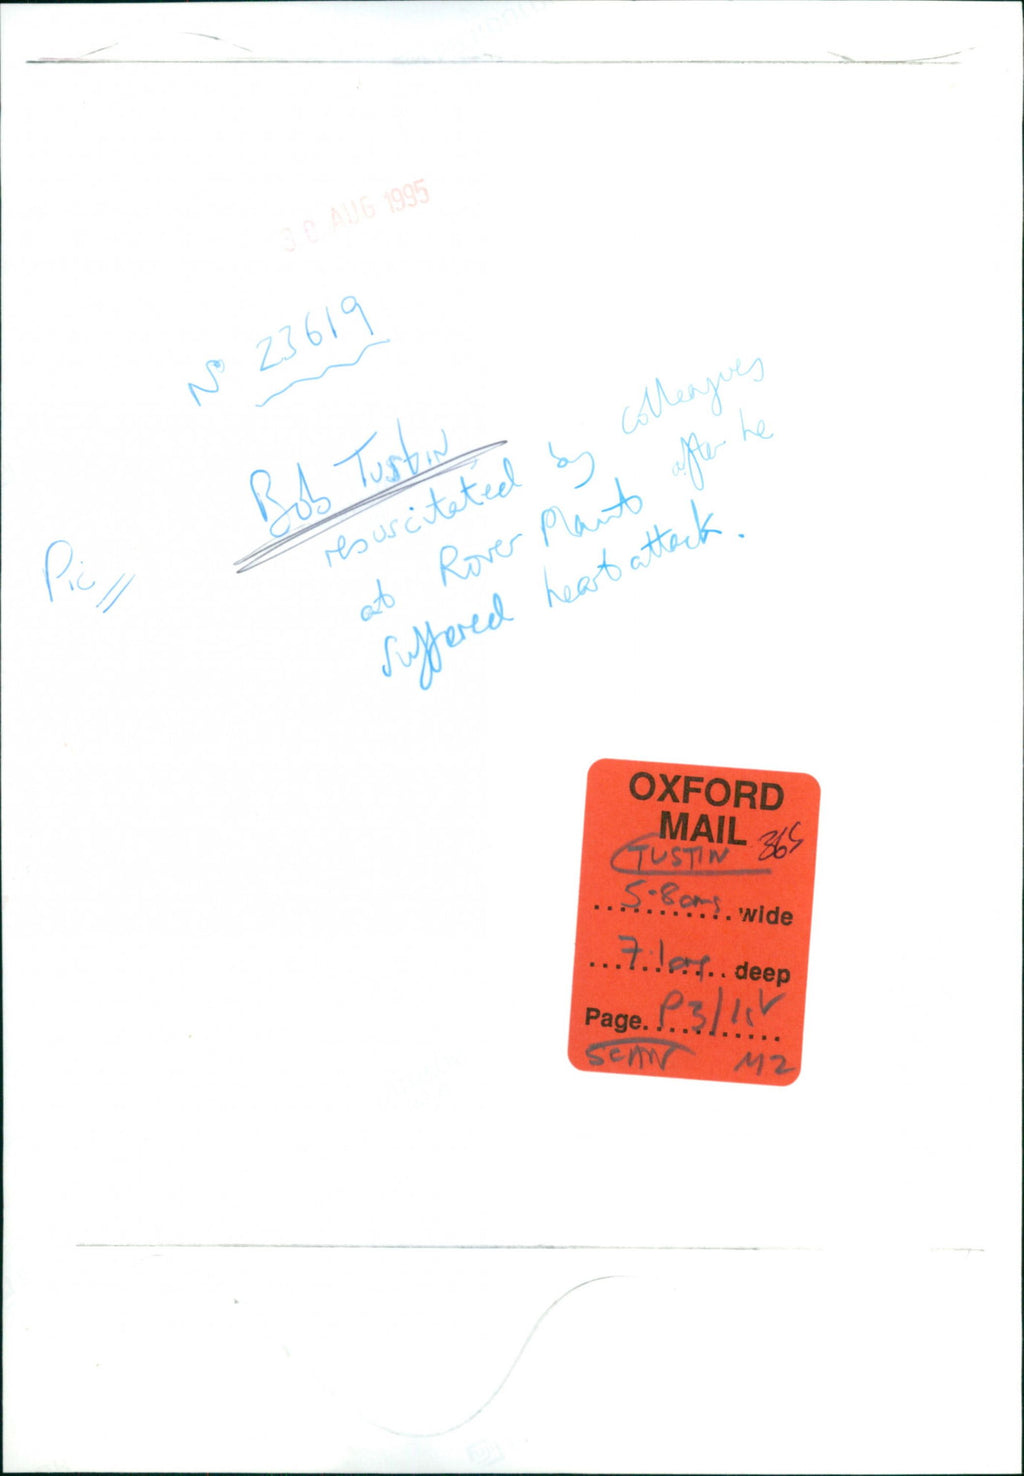 AUG 1995
No 23619
Bob Tustin
resuscitated by colleagues
at Rover Plant after he
suffered heart attack.
Pic
OXFORD
MAIL 365
TUSTIN
5.8cms wide
7.1cms deep
Page. P3/liv
SCAN M2